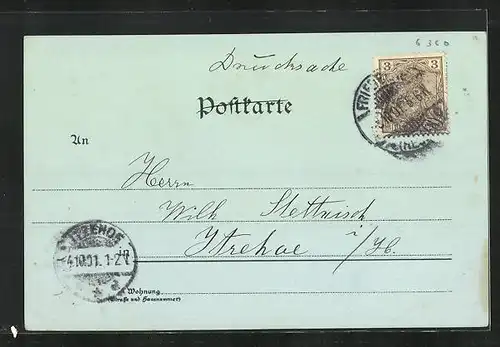 6360
Drucksache
3
Postkarte
An
Herrn
Wilh Stettnisch
Itzehoe i/H.
ITZEHOE
4.10.01. 1-2
Wohnung
(Straße und Hausnummer)